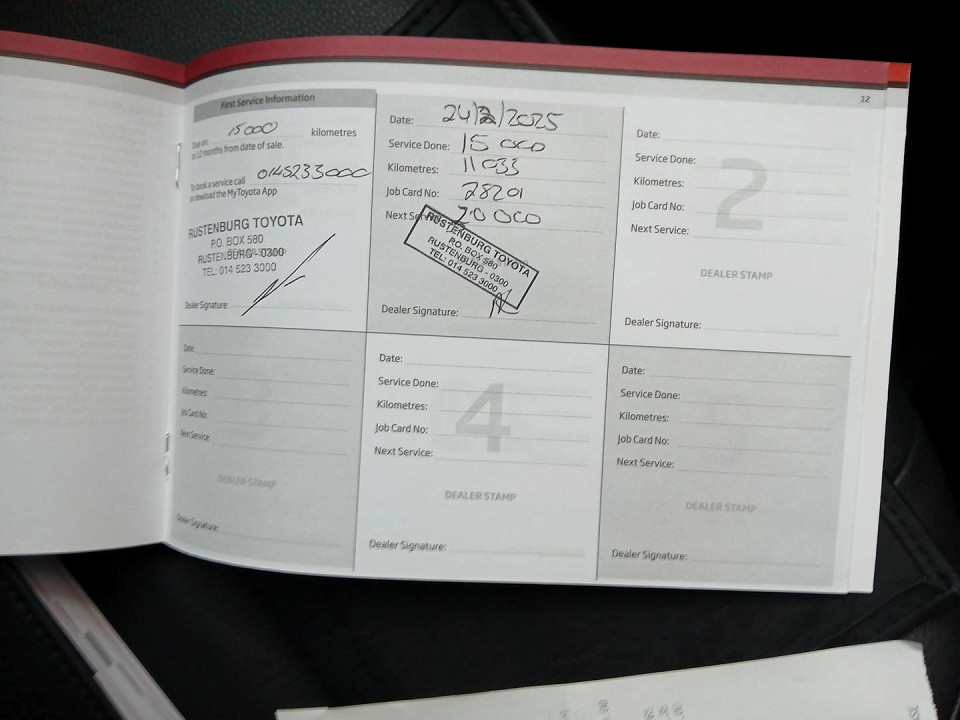 12
First Service Information
Due on: 15000 kilometres
or 12 months from date of sale.
To book a service call 0145233000
or download the MyToyota App
RUSTENBURG TOYOTA
P.O. BOX 580
RUSTENBURG - 0300
TEL: 014 523 3000
Dealer Signature:
Date: 24/2/2025
Service Done: 15 000
Kilometres: 11 033
Job Card No: 28201
Next Service: 20 000
RUSTENBURG TOYOTA
P.O. BOX 580
RUSTENBURG - 0300
TEL: 014 523 3000
Dealer Signature:
2
Date:
Service Done:
Kilometres:
Job Card No:
Next Service:
DEALER STAMP
Dealer Signature:
Date:
Service Done:
Kilometres:
Job Card No:
Next Service:
DEALER STAMP
Dealer Signature:
4
Date:
Service Done:
Kilometres:
Job Card No:
Next Service:
DEALER STAMP
Dealer Signature:
Date:
Service Done:
Kilometres:
Job Card No:
Next Service:
DEALER STAMP
Dealer Signature: